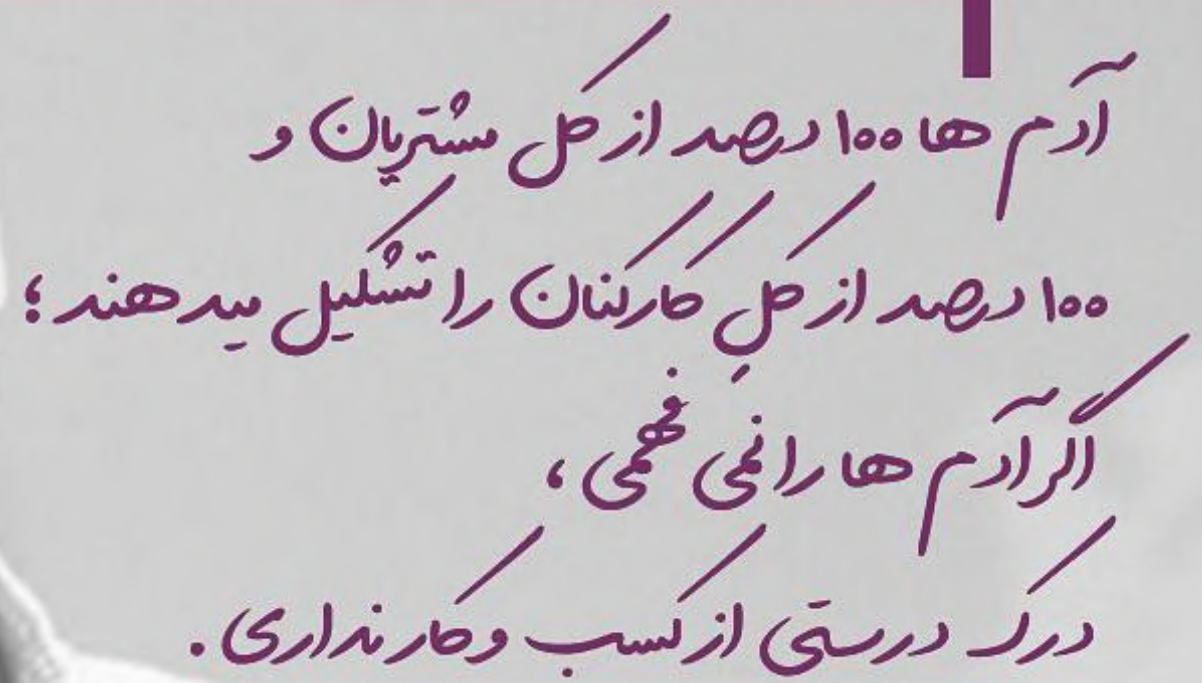 آدم ها ۱۰۰ درصد از کل مشتریان و
۱۰۰ درصد از کلِ کارکنان را تشکیل میدهند؛
اگر آدم ها را نمی فهمی،
درک درستی از کسب و کار نداری.